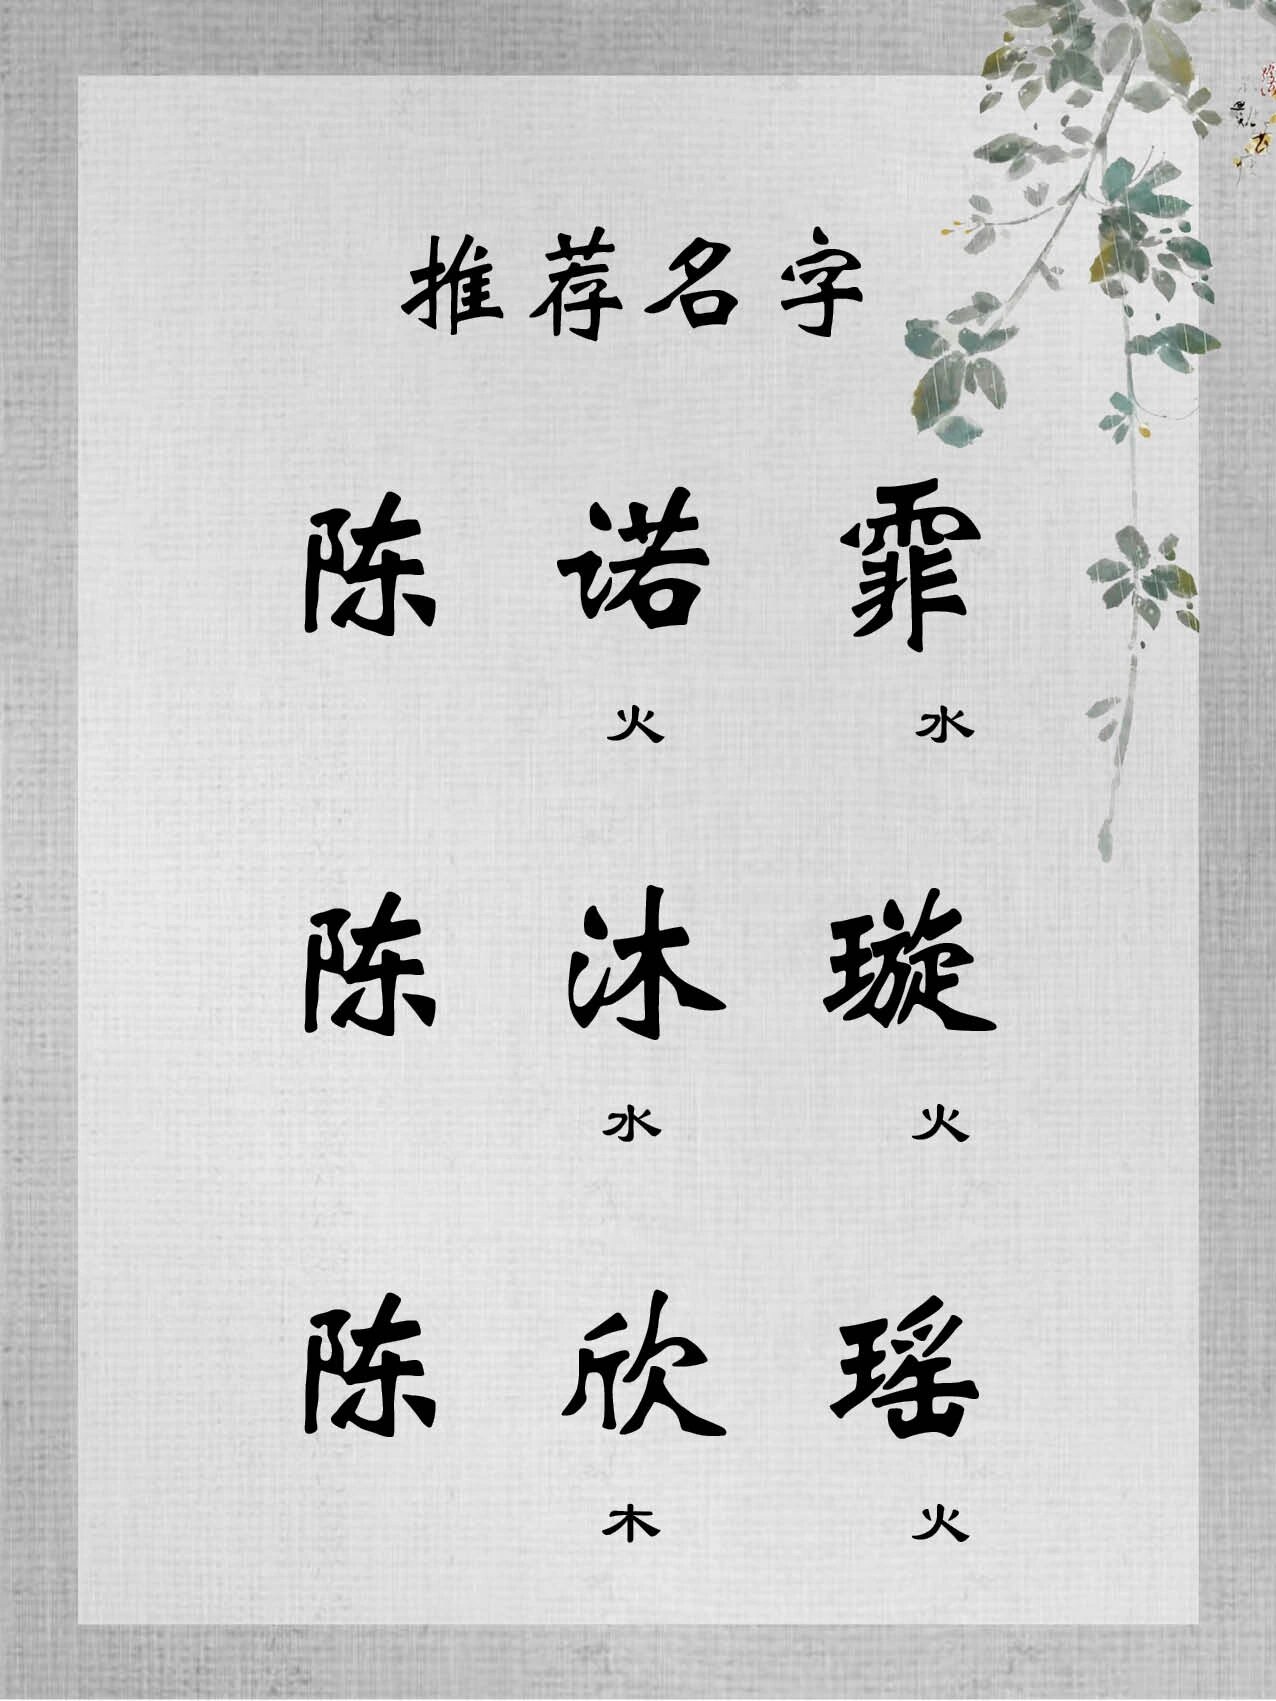 推荐名字
陈 诺 霏
火 水
陈 沐 璇
水 火
陈 欣 瑶
木 火